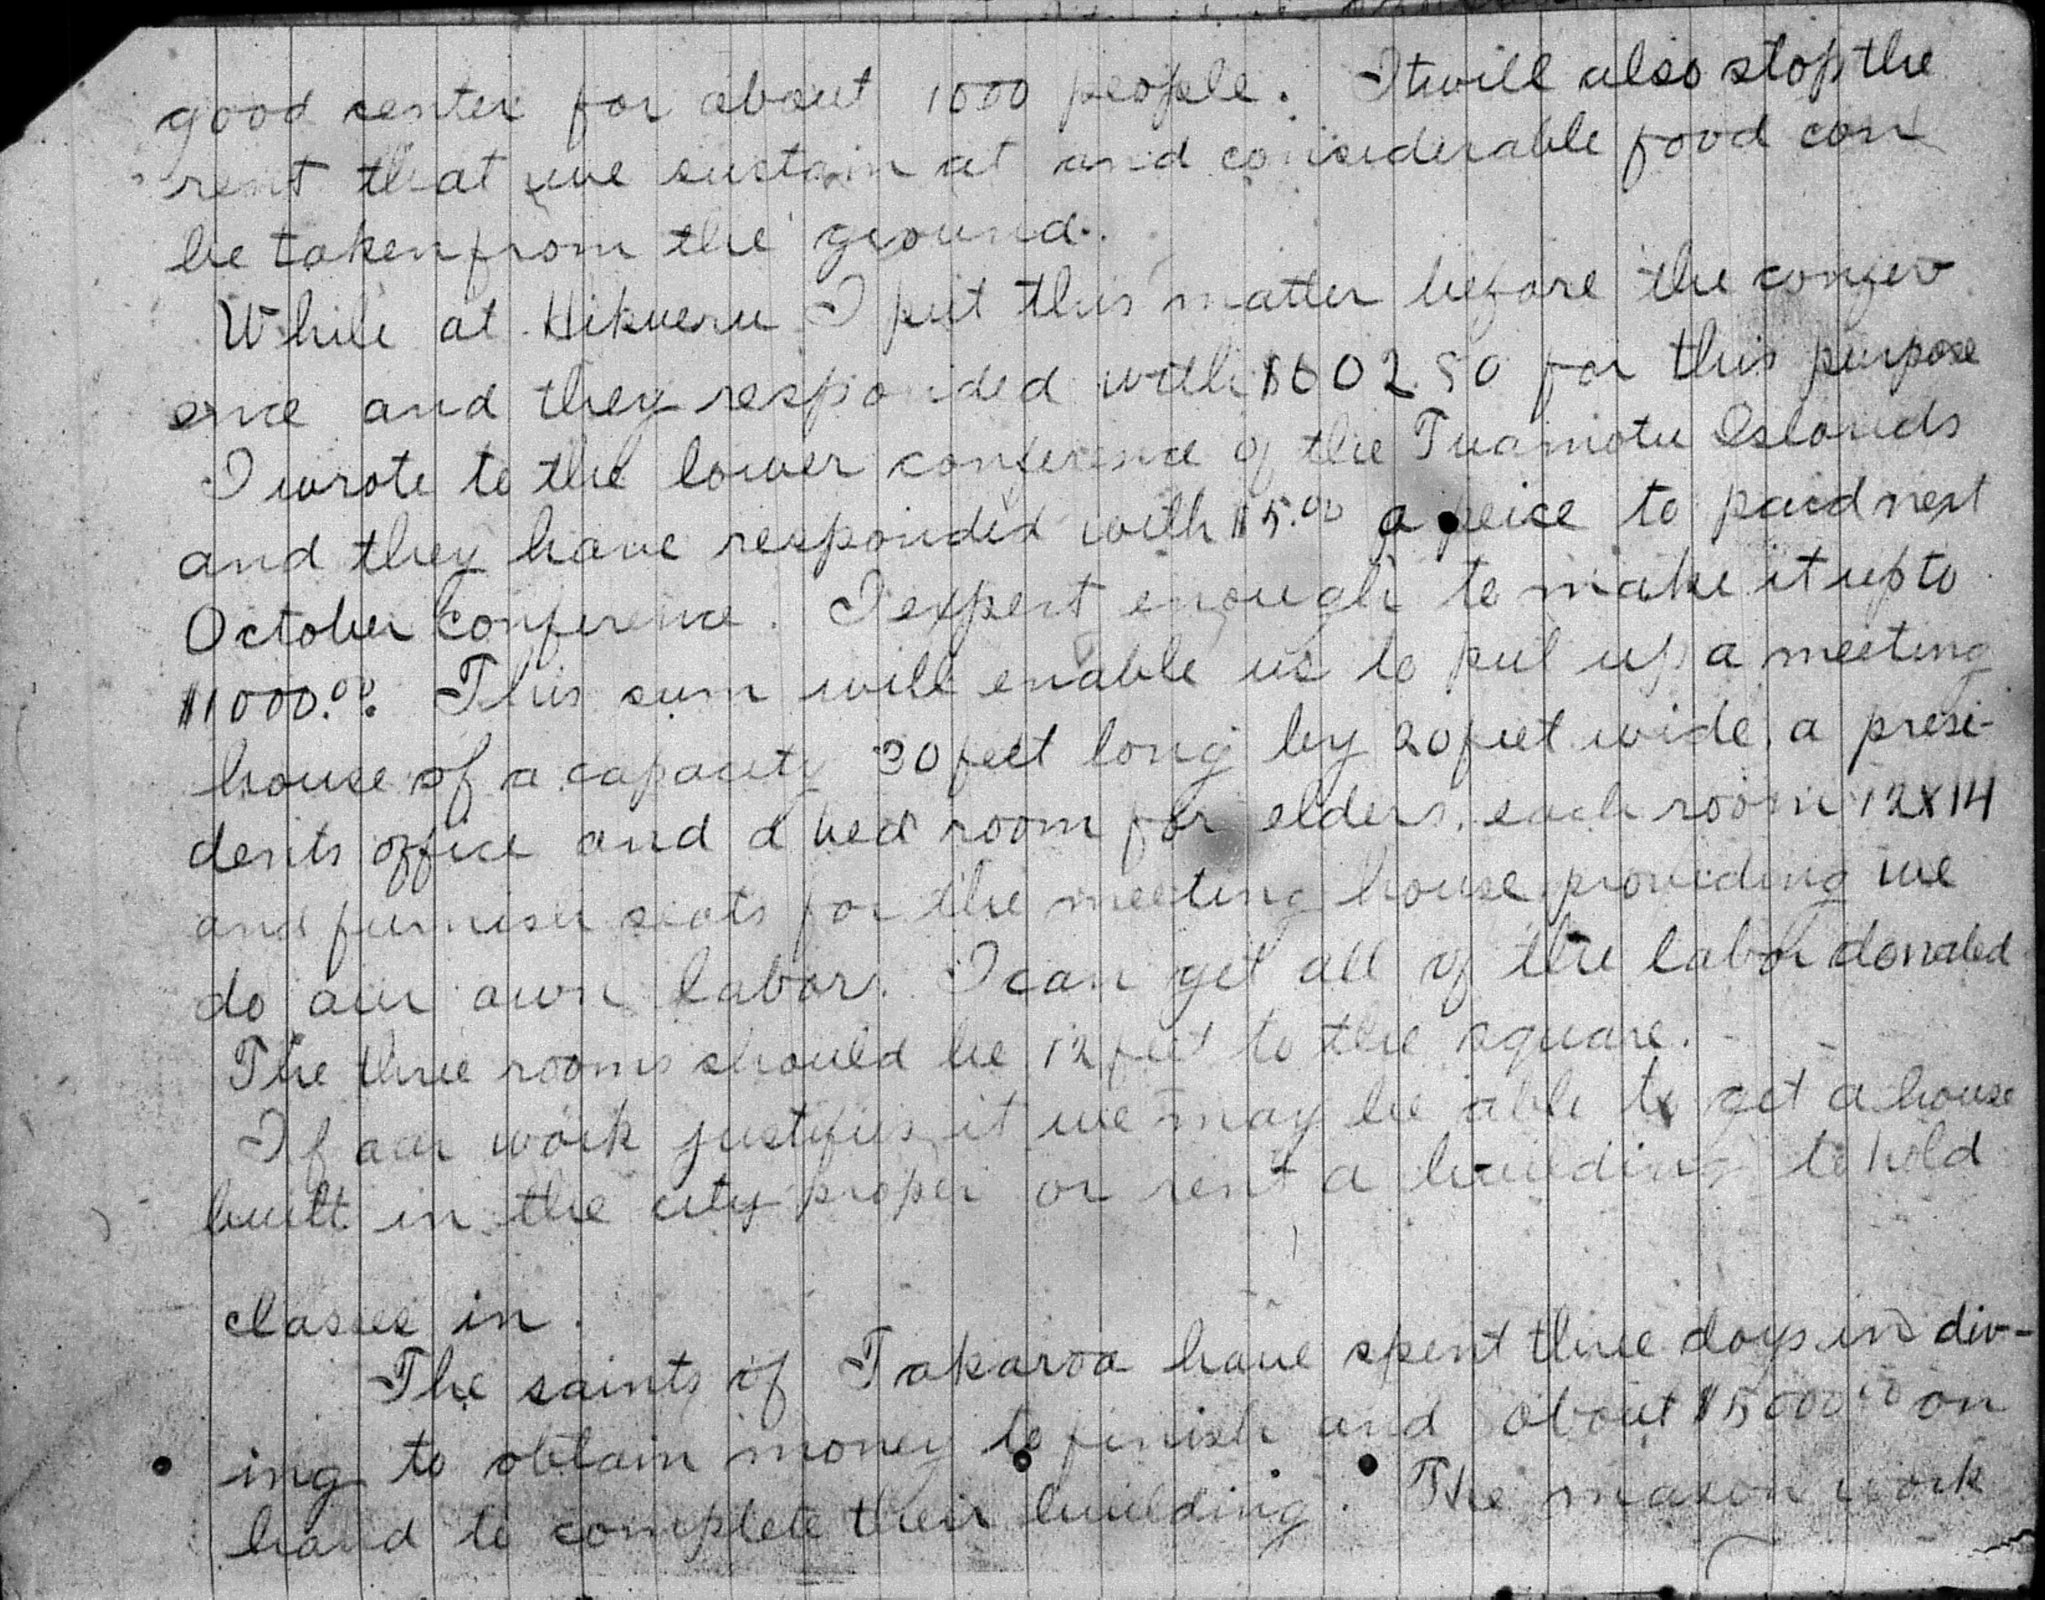 good center for about 1000 people. It will also stop the
rent that we sustain at and considerable food can
be taken from the ground.
While at Hikueru I put this matter before the confer
ence and they responded with $602.50 for this purpose
I wrote to the lower conference of the Tuamotu Islands
and they have responded with $5.00 a peice to paid next
October conference. I expect enough to make it up to
$1000.00. This sum will enable us to put up a meeting
house of a capacity 30 feet long by 20 feet wide, a presi-
dents office and a bed room for elders, each room 12x14
and furnish seats for the meeting house providing we
do our own labor. I can get all of the labor donated
The three rooms should be 12 feet to the square.
If our work justifies it we may be able to get a house
built in the city proper or rent a building to hold
classes in.
The saints of Takaroa have spent three days in div-
ing to obtain money to finish and about $5000.00 on
hand to complete their building. The mason work